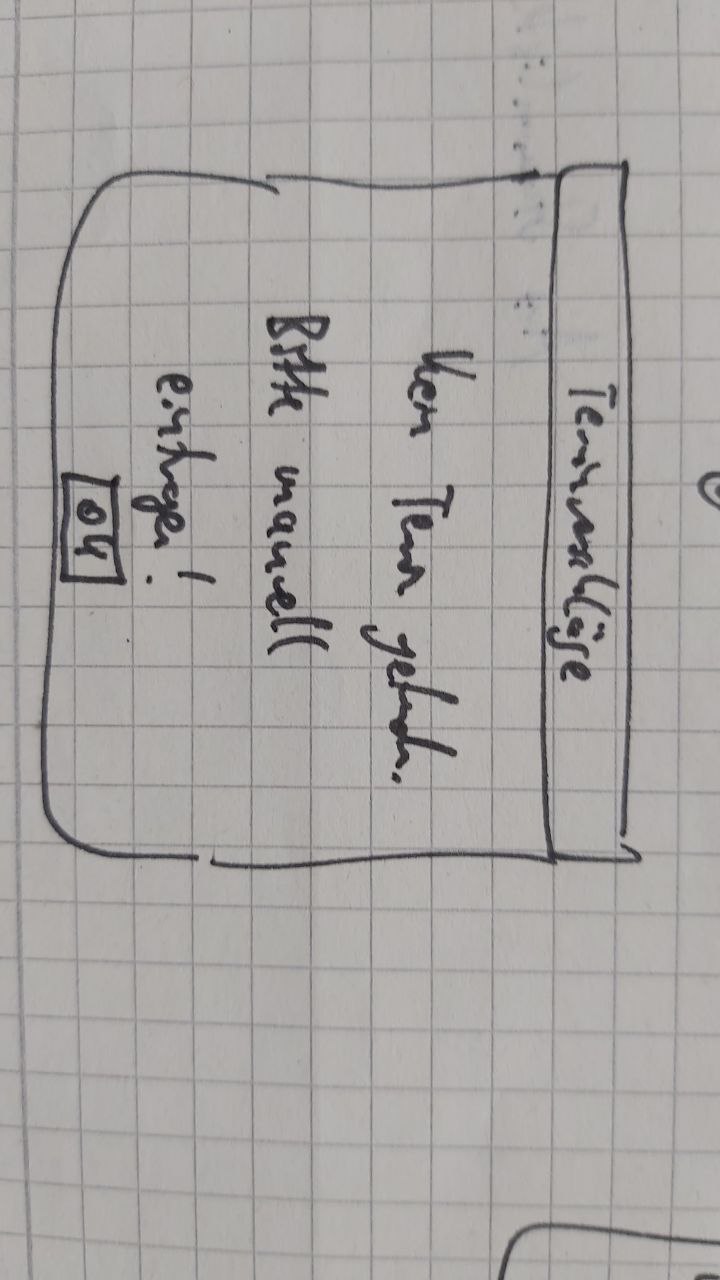 Terminvorschläge
Kein Termin gefunden.
Bitte manuell
eintragen!
OK